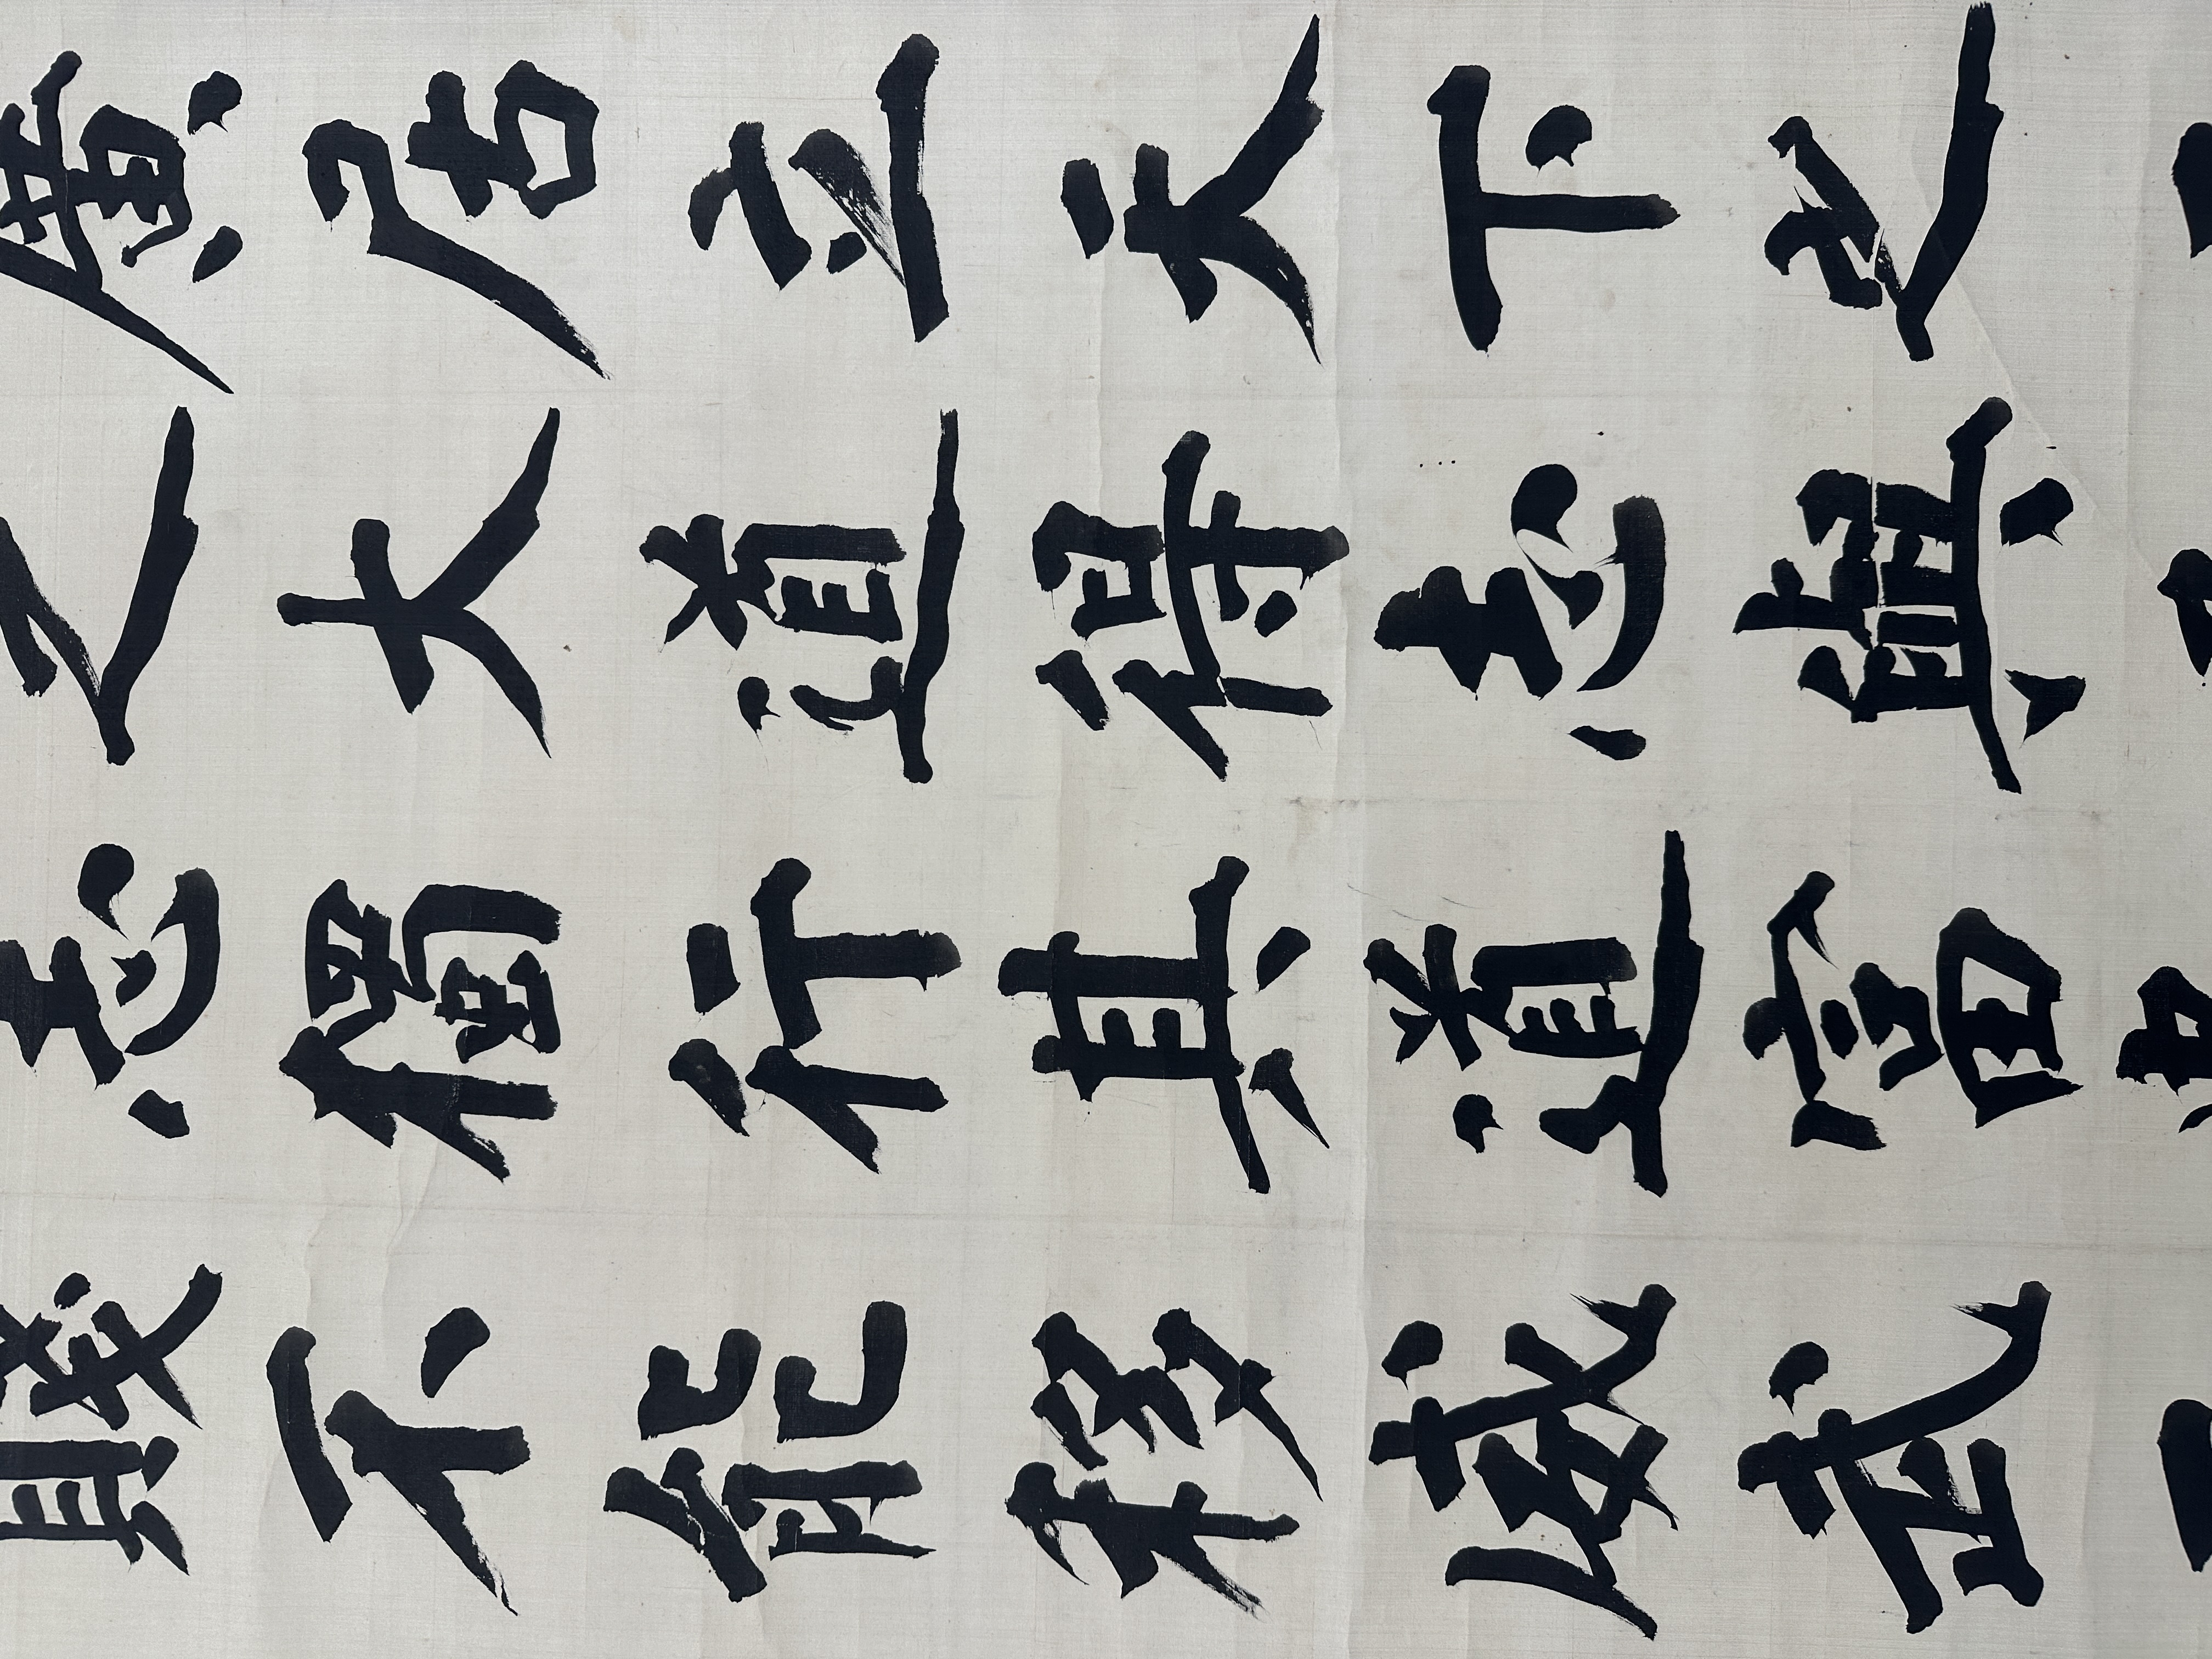 廣居立天下之
之大道得志與
志獨行其道富
賤不能移威武